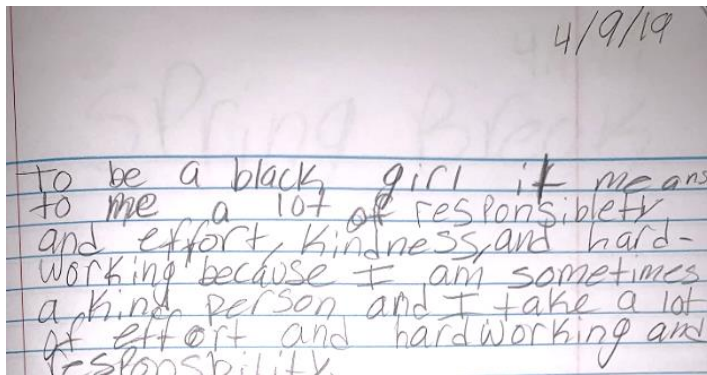 4/9/19
Spring Break
To be a black girl it means
to me a lot of responsiblety
and effort, kindness, and hard-
working because I am sometimes
a kind person and I take a lot
of effort and hardworking and
responsbility.